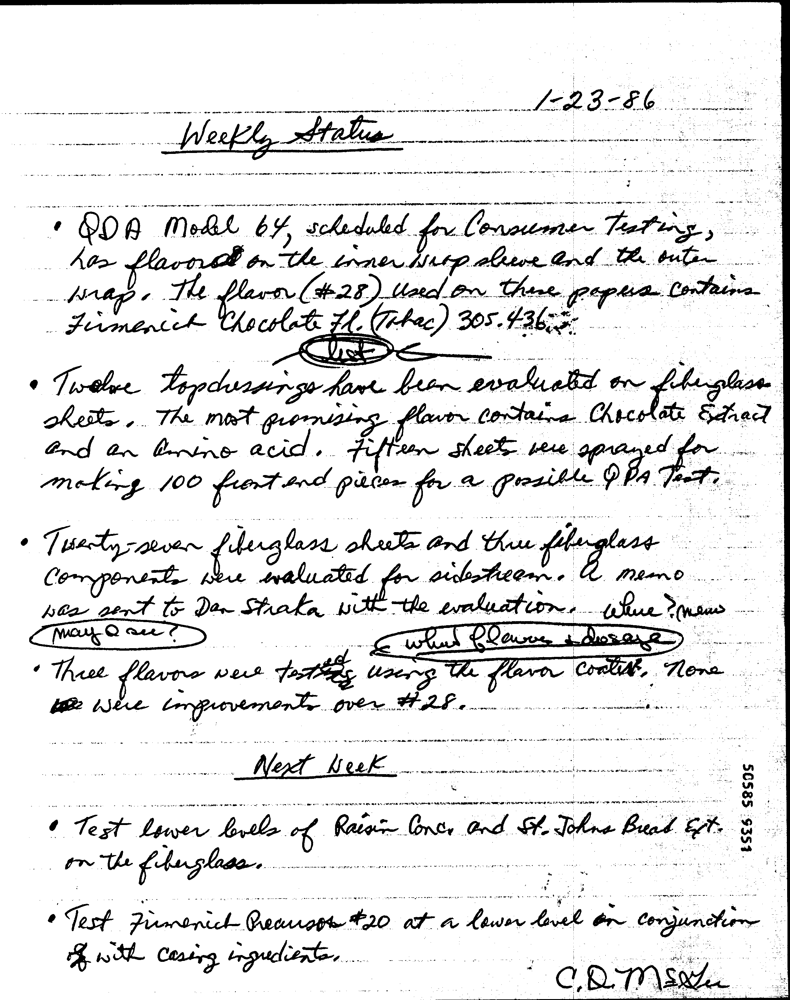 1-23-86
Weekly Status
• QDA Model 64, scheduled for Consumer Testing,
has flavored on the inner wrap sleeve and the outer
wrap. The flavor (#28) used on these papers contains
Firmenich Chocolate Fl. (Tabac) 305.436
• Twelve topdressings have been evaluated on fiberglass
sheets. The most promising flavor contains Chocolate Extract
and an Amino acid. Fifteen sheets were sprayed for
making 100 front end pieces for a possible QDA Test.
• Twenty-seven fiberglass sheets and three fiberglass
components were evaluated for sidestream. A memo
was sent to Dan Straka with the evaluation. where? memo
may I see?
what flavors + dosage
• Three flavors were tested using the flavor coater. None
were improvements over #28.
Next Week
• Test lower levels of Raisin Conc. and St. Johns Bread Ext.
on the fiberglass.
• Test Firmenich Precursor #20 at a lower level in conjunction
with casing ingredients.
C.D.
50585 9351